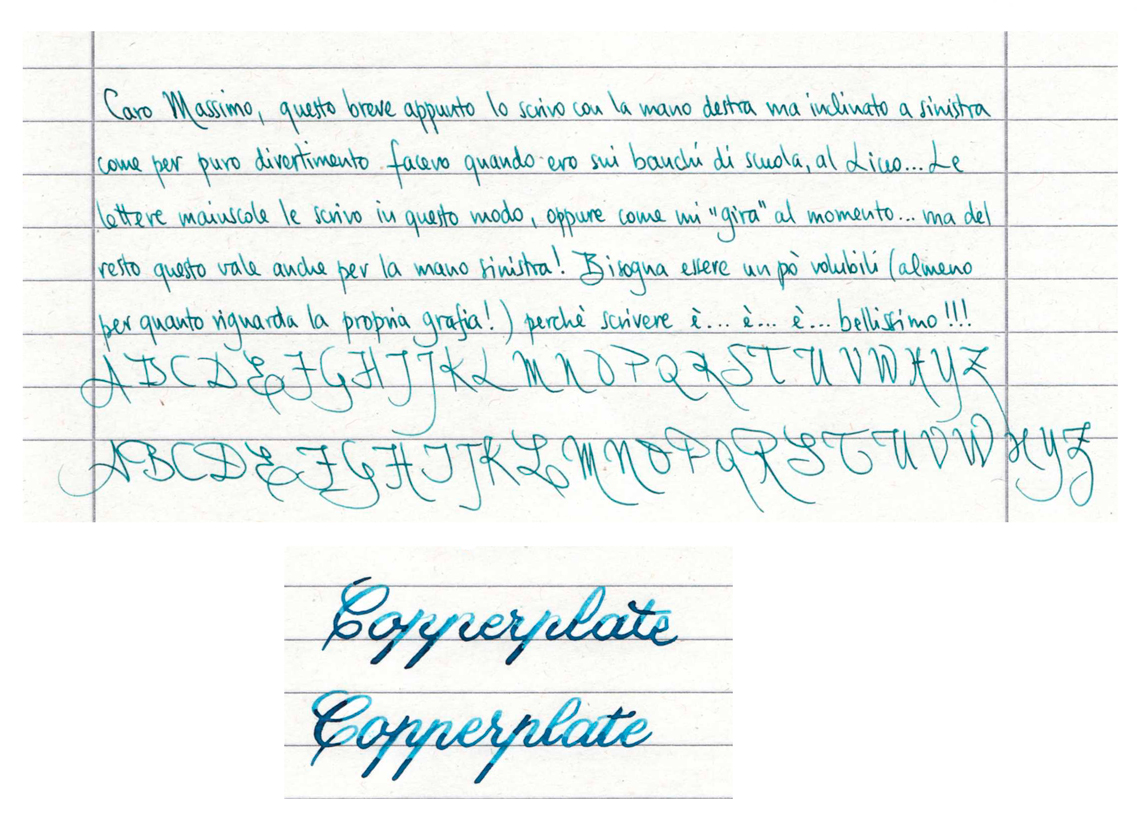 Caro Massimo, questo breve appunto lo scrivo con la mano destra ma inclinato a sinistra
come per puro divertimento facevo quando ero sui banchi di scuola, al Liceo... Le
lettere maiuscole le scrivo in questo modo, oppure come mi "gira" al momento... ma del
resto questo vale anche per la mano sinistra! Bisogna essere un pò volubili (almeno
per quanto riguarda la propria grafia!) perchè scrivere è... è... è... bellissimo!!!
A B C D E F G H I J K L M N O P Q R S T U V W X Y Z
A B C D E F G H I J K L M N O P Q R S T U V W X Y Z
Copperplate
Copperplate